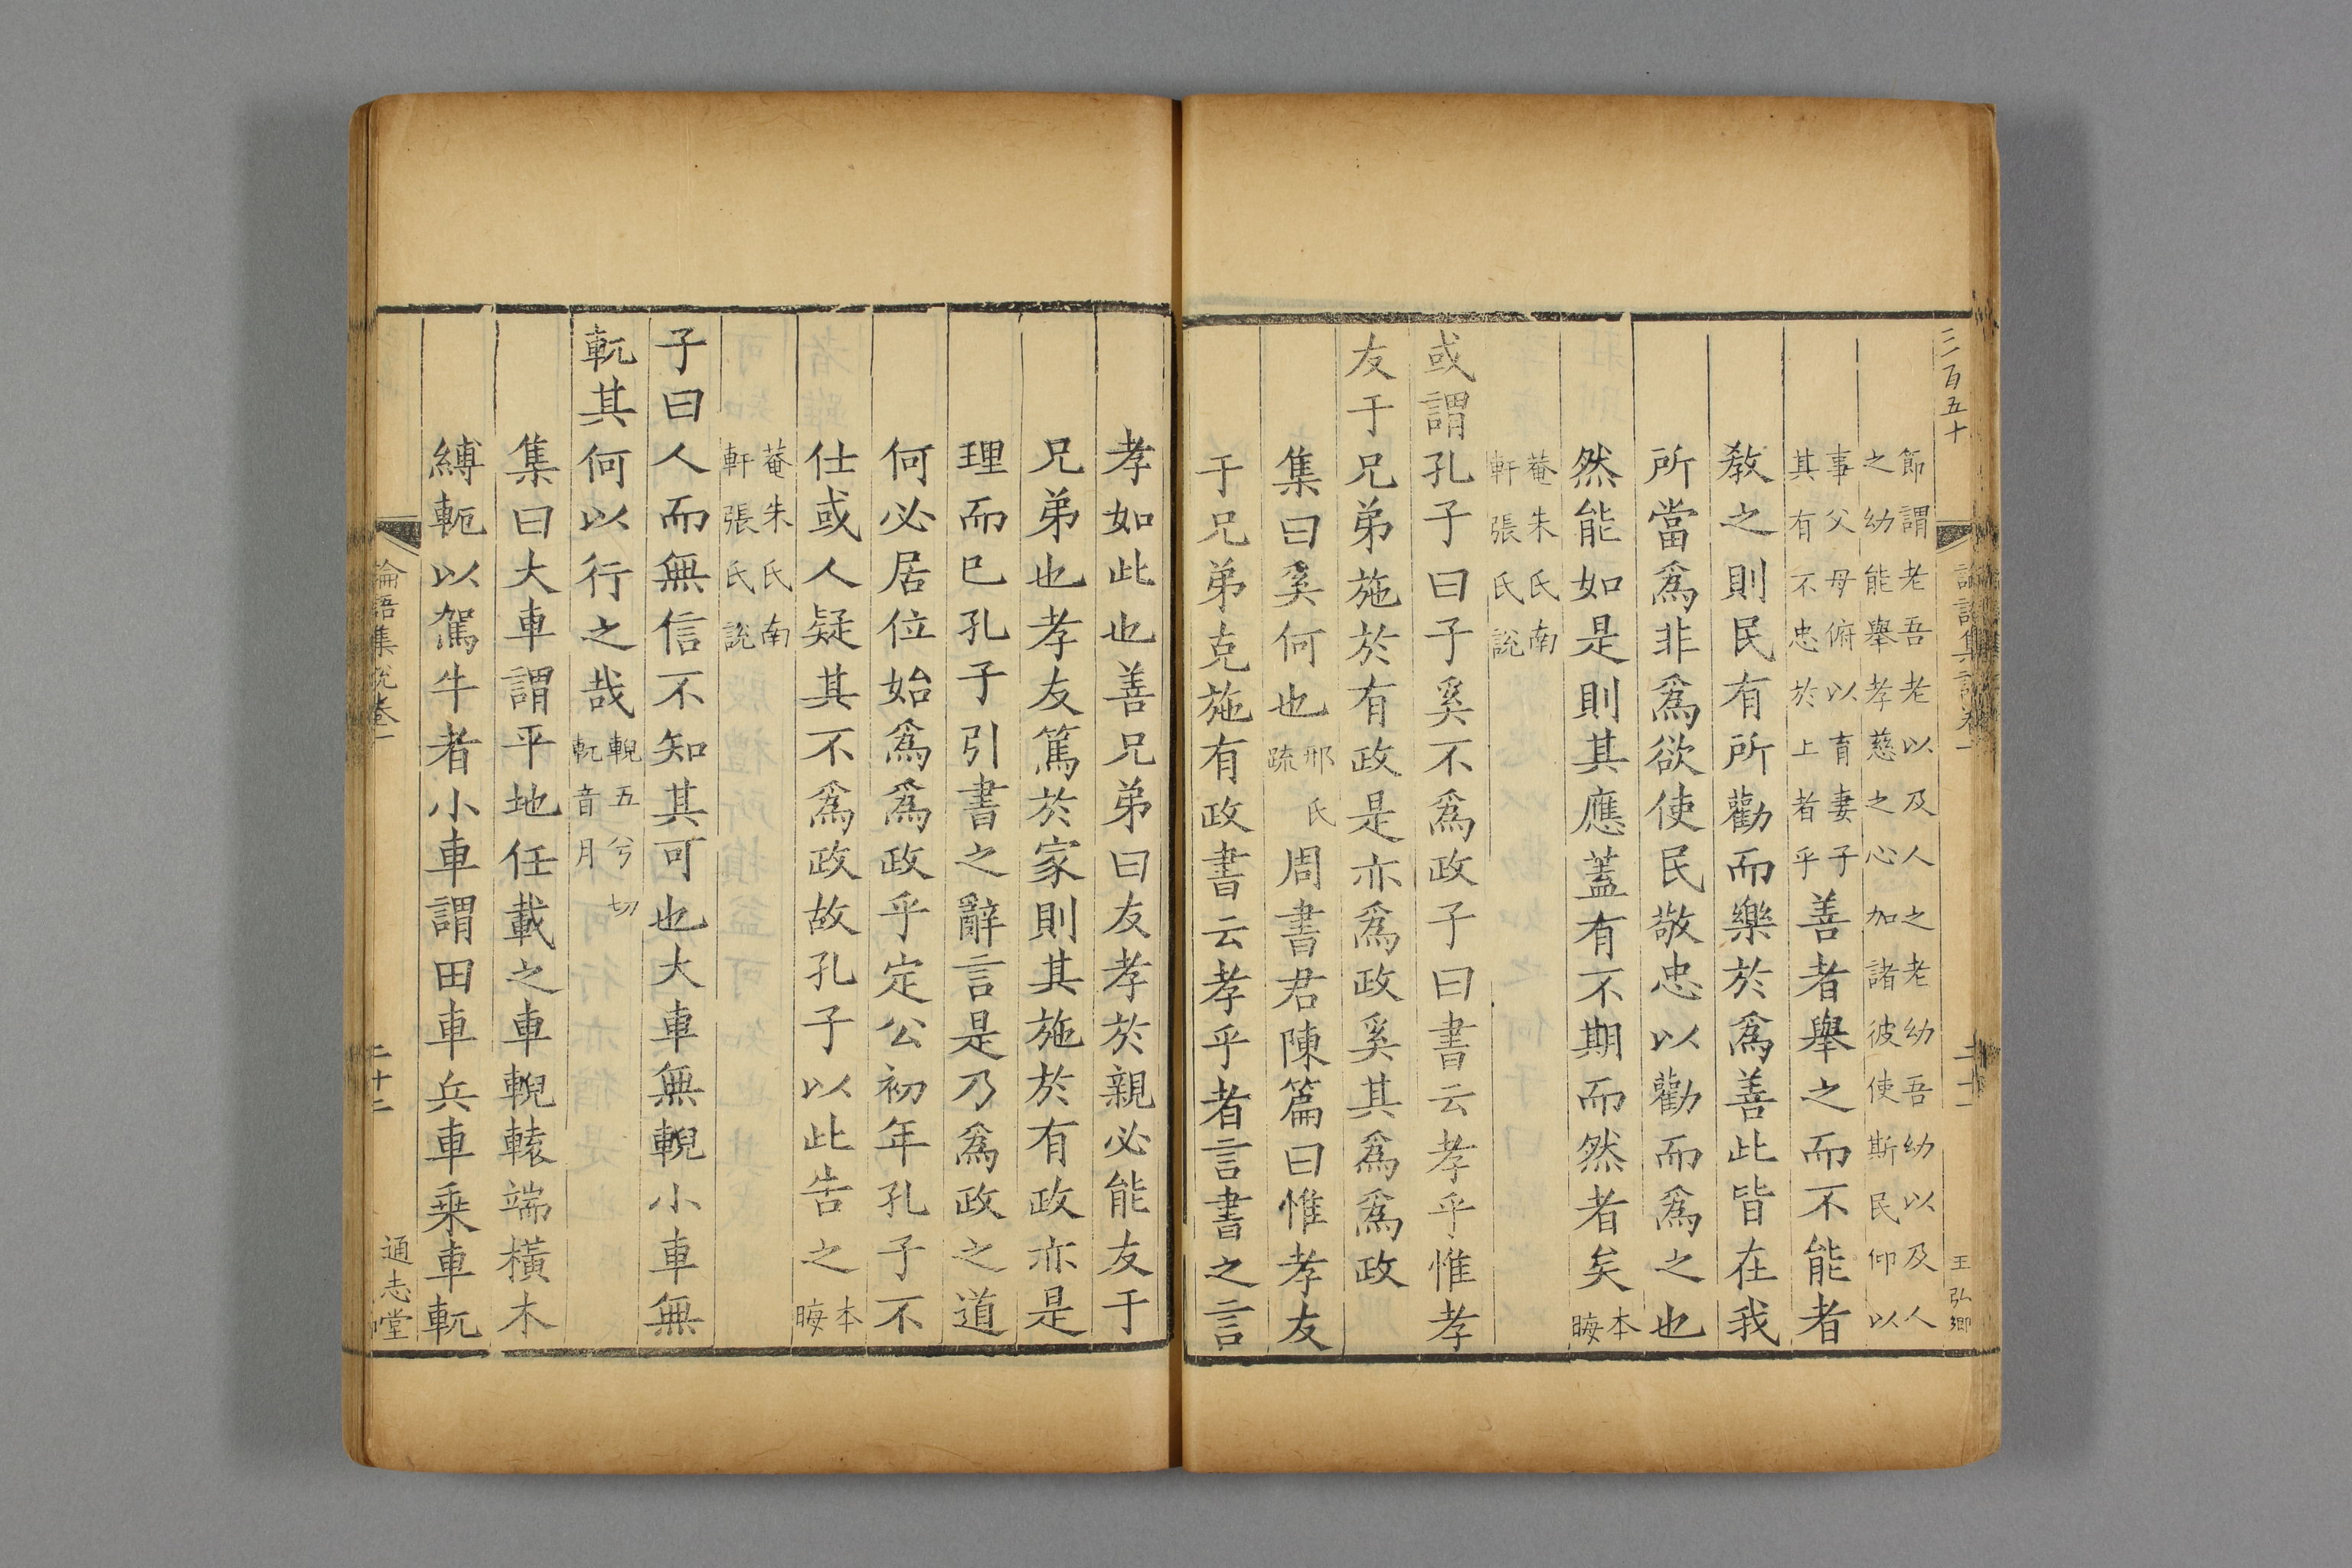 三百五十
王弘卿
節謂老吾老以及人之老幼吾幼以及人
之幼能舉孝慈之心加諸彼使斯民仰以
事父母俯以育妻子
其有不忠於上者乎
善者舉之而不能者
教之則民有所勸而樂於爲善此皆在我
所當爲非爲欲使民敬忠以勸而爲之也
然能如是則其應蓋有不期而然者矣
本
晦
菴朱氏南
軒張氏說
或謂孔子曰子奚不爲政子曰書云孝乎惟孝
友于兄弟施於有政是亦爲政奚其爲爲政
集曰奚何也
邢氏
疏
周書君陳篇曰惟孝友
于兄弟克施有政書云孝乎者言書之言
孝如此也善兄弟曰友孝於親必能友于
兄弟也孝友篤於家則其施於有政亦是
理而已孔子引書之辭言是乃爲政之道
何必居位始爲爲政乎定公初年孔子不
仕或人疑其不爲政故孔子以此告之
本
晦
菴朱氏南
軒張氏說
子曰人而無信不知其可也大車無輗小車無
軏其何以行之哉
輗五兮切
軏音月
集曰大車謂平地任載之車輗轅端橫木
縛軛以駕牛者小車謂田車兵車乘車軏
論語集說卷一
二十二
通志堂